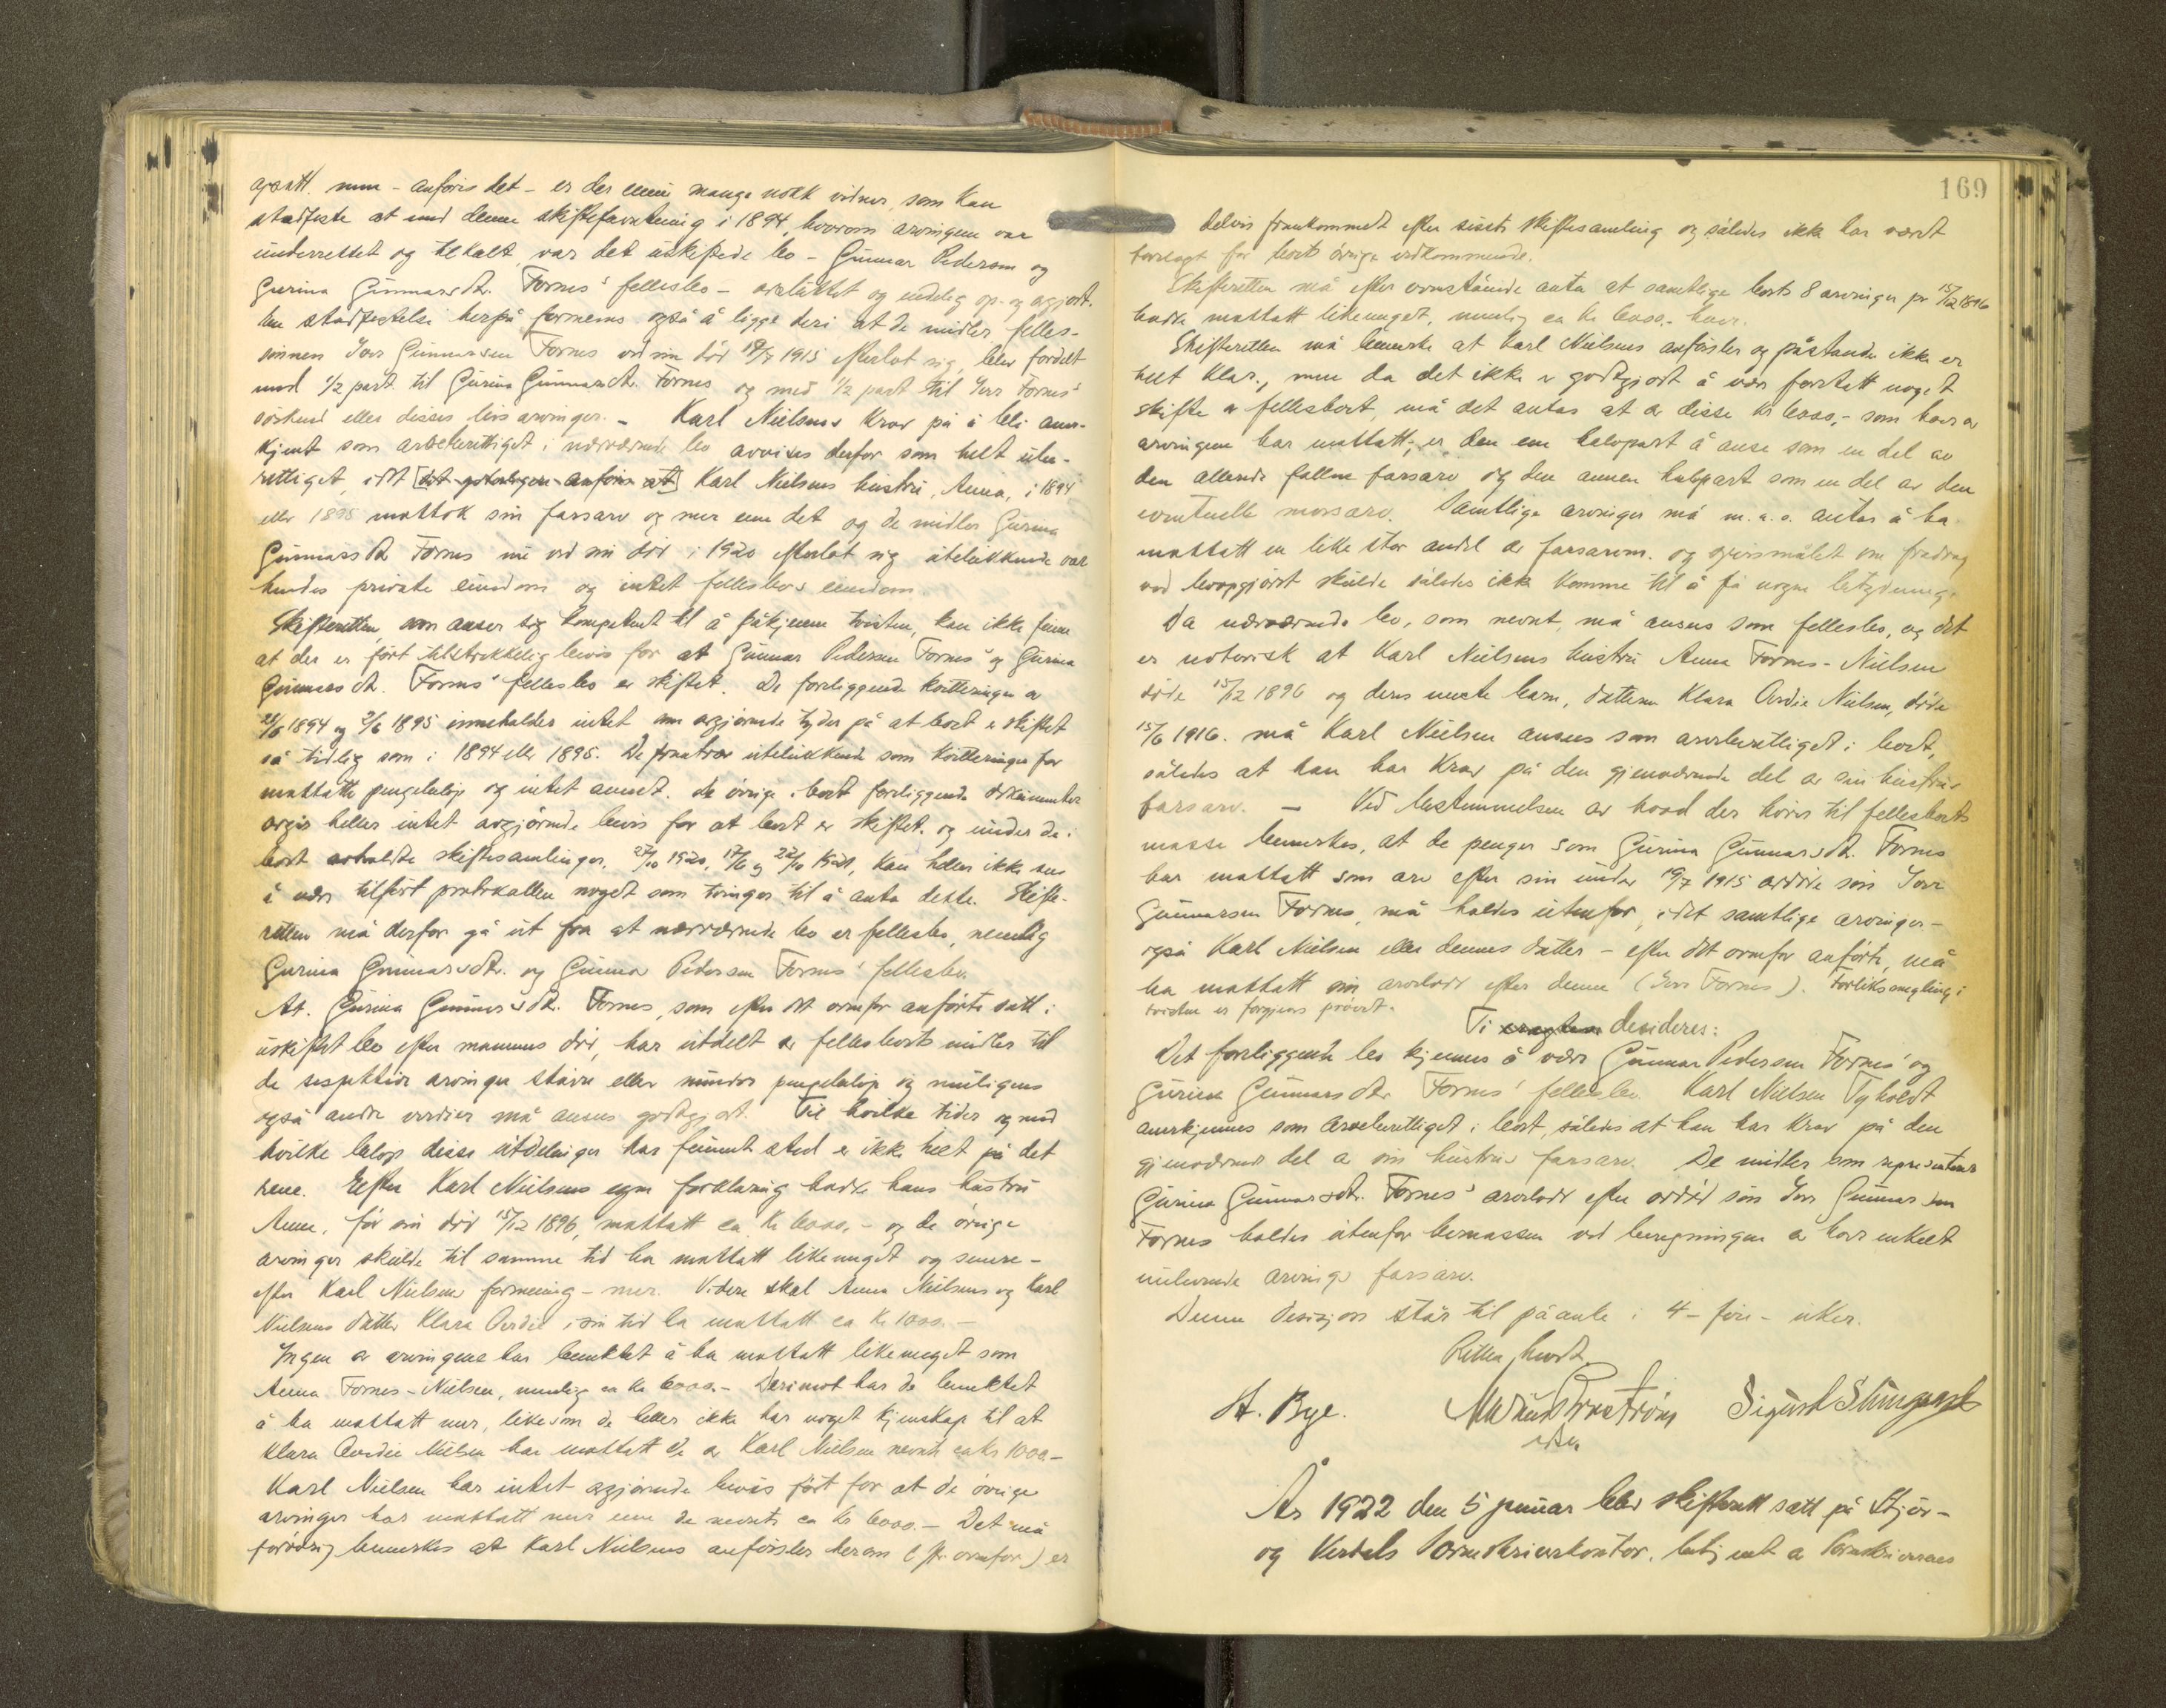 avsatt. men - anføres det - er der ennu mange nokk vidner, som kan
stadfeste at med denne skifteforretning i 1894, hvorom arvingene var
underrettet og tilkalt, var det uskiftede bo - Gunnar Pedersen og
Gurina Gunnarsdtr. Fornes' fellesbo - avsluttet og endelig op- og avgjort.
En stadfestelse herpå formenes også å ligge deri at de midler felles-
sønnen Iver Gunnarsen Fornes ved sin død 19/7 1915 efterlot sig, blev fordelt
med 1/2 part til Gurina Gunnarsdtr. Fornes og med 1/2 part til Iver Fornes'
søskend eller disses livsarvinger. - Karl Nielsens krav på å bli aner-
kjent som arveberettiget i nærværende bo avvises derfor som helt ube-
rettiget, idet [det ytterligere anføres at] Karl Nielsens hustru, Anna, i 1894
eller 1895 mottok sin farsarv og mer enn det og de midler Gurina
Gunnarsdtr Fornes nu ved sin død i 1920 efterlot sig utelukkende var
hendes private eiendom og intet fellesbos eiendom.
Skifteretten, som anser sig kompetent til å påkjenne tvisten, kan ikke finne
at der er ført tilstrekkelig bevis for at Gunnar Pedersen Fornes' og Gurina
Gunnarsdtr. Fornes' fellesbo er skiftet. De foreliggende kvitteringer av
28/6 1894 og 3/6 1895 inneholder intet som avgjørende tyder på at boet er skiftet
så tidlig som i 1894 eller 1895. De fremtrær utelukkende som kvitteringer for
mottatte pengebeløp og intet annet. De øvrige i boet foreliggende dokumenter
avgir heller intet avgjørende bevis for at boet er skiftet. og under de i
boet avholdte skiftesamlinger, 27/10 1920, 17/6 og 22/10 1921, kan heller ikke sees
å være tilført protokollen noget som tvinger til å anta dette. Skifte-
retten må derfor gå ut fra at nærværende bo er fellesbo, nemlig
Gurina Gunnarsdtr. og Gunnar Pedersen Fornes' fellesbo.
At Gurina Gunnarsdtr. Fornes, som efter det ovenfor anførte satt i
uskiftet bo efter mannens død, har utdelt av fellesboets midler til
de respektive arvinger større eller mindre pengebeløp og muligens
også andre verdier må ansees godtgjort. Til hvilke tider og med
hvilke beløp disse utdelinger har funnet sted er ikke helt på det
rene. Efter Karl Nielsens egen forklaring hadde hans hustru
Anna, før sin død 15/12 1896, mottatt ca. kr 6000,- og de øvrige
arvinger skulde til samme tid ha mottatt like meget og senere -
efter Karl Nielsens formening - mer. Videre skal Anna Nielsens og Karl
Nielsens datter Klara Ovedie i sin tid ha mottatt ca kr 1000.-
Ingen av arvingene har benektet å ha mottatt like meget som
Anna Fornes-Nielsen, nemlig ca kr 6000.- Derimot har de benektet
å ha mottatt mer, likesom de heller ikke har noget kjenskap til at
Klara Ovedie Nielsen har mottatt de av Karl Nielsen nevnte ca kr 1000.-
Karl Nielsen har intet avgjørende bevis ført for at de øvrige
arvinger har mottatt mer enn de nevnte ca kr 6000.- Det må
forøvrig bemerkes at Karl Nielsens anførsler herom (se ovenfor) er
169
delvis fremkommet efter siste skiftesamling og således ikke har været
forelagt for boets øvrige vedkommende.
Skifteretten må efter ovenstående anta at samtlige boets 8 arvinger pr 15/12 1896
hadde mottatt like meget, nemlig ca kr 6000.- hver.
Skifteretten må bemerke at Karl Nielsens anførsler og påstande ikke er
helt klar., men da det ikke er godtgjort å være foretatt noget
skifte av fellesboet, må det antas at av disse kr 6000,- som hver av
arvingene har mottatt, er den ene halvpart å anse som en del av
den allerede falne farsarv og den annen halvpart som en del av den
eventuelle morsarv. Samtlige arvinger må m. a. o. antas å ha
mottatt en like stor andel av farsarven. og spørsmålet om fradrag
ved booppgjøret skulde således ikke komme til å få nogen betydning.
Da nærværende bo, som nevnt, må ansees som fellesbo, og det
er notorisk at Karl Nielsens hustru Anna Fornes-Nielsen
døde 15/12 1896 og deres eneste barn, datteren Klara Ovedie Nielsen, døde
15/6 1916. må Karl Nielsen ansees som arveberettiget i boet,
således at han har krav på den gjenværende del av sin hustrus
farsarv. - Ved bestemmelsen av hvad der hører til fellesboets
masse bemerkes, at de penger som Gurina Gunnarsdtr. Fornes
har mottatt som arv efter sin under 19/7 1915 avdøde søn Iver
Gunnarsen Fornes, må holdes utenfor, idet samtlige arvinger -
også Karl Nielsen eller dennes datter - efter det ovenfor anførte, må
ha mottatt sin arvelodd efter denne (Iver Fornes). Forliksmegling i
tvisten er forgjeves prøvet.
Ti eragtes desideres:
Det foreliggende bo kjennes å være Gunnar Pedersen Fornes' og
Gurina Gunnarsdtr Fornes' fellesbo. Karl Nielsen Tyholdt
anerkjennes som arveberettiget i boet, således at han har krav på den
gjenværende del av sin hustrus farsarv. De midler som representerer
Gurina Gunnarsdtr. Fornes' arvelodd efter avdød søn Iver Gunnarsen
Fornes holdes utenfor bomassen ved beregningen av hver enkelt
nulevende arvings farsarv.
Denne desisjon står til påanke i 4 - fire - uker.
Retten hevet.
St. Bye. Sigurd
Ar 1922 den 5 januar blev skifterett satt på Stjør-
og Verdals sorenskriverkontor, betjent av sorenskriverens